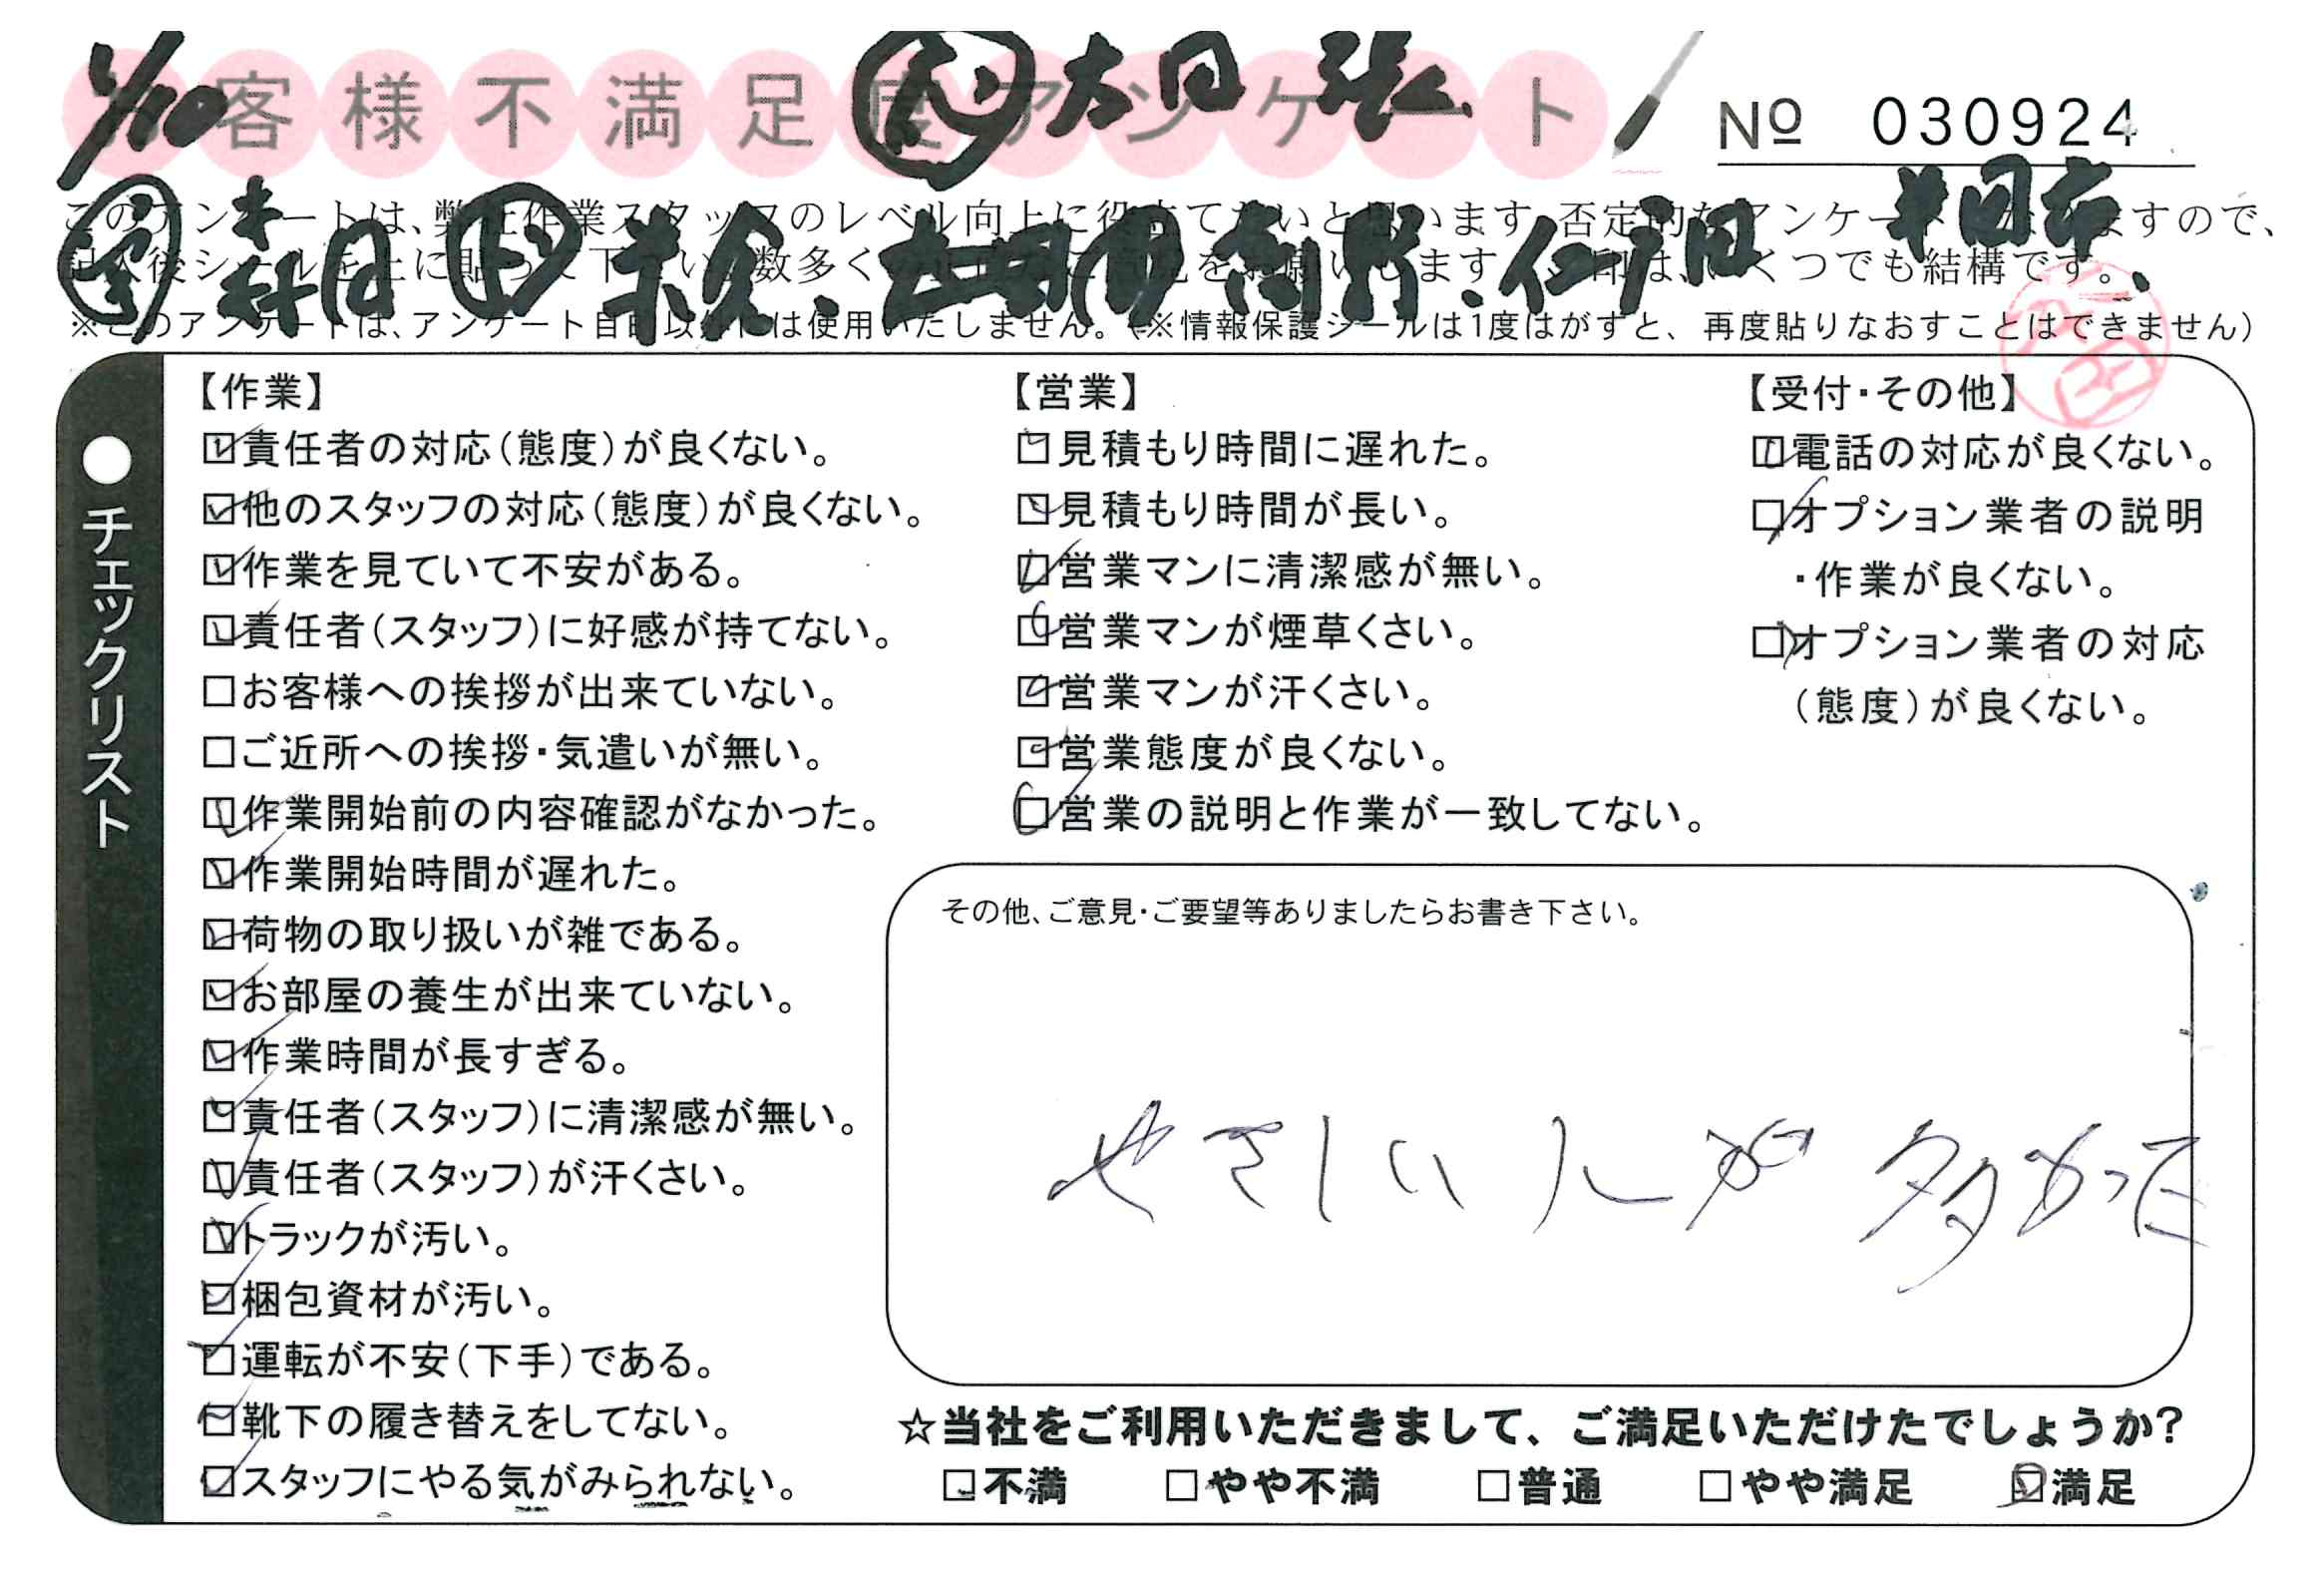 1/10 お客様不満足度アンケート No 030924
このアンケートは、弊社作業スタッフのレベル向上に役立てたいと思います。否定的なアンケートになりますので、
記入後シールを上に貼って下さい。数多くの
※このアンケートは、アンケート自由以外には使用いたしません。(※情報保護シールは1度はがすと、再度貼りなおすことはできません)
●チェックリスト
【作業】
☑責任者の対応(態度)が良くない。
☑他のスタッフの対応(態度)が良くない。
☑作業を見ていて不安がある。
☑責任者(スタッフ)に好感が持てない。
□お客様への挨拶が出来ていない。
□ご近所への挨拶・気遣いが無い。
☑作業開始前の内容確認がなかった。
☑作業開始時間が遅れた。
☑荷物の取り扱いが雑である。
☑お部屋の養生が出来ていない。
☑作業時間が長すぎる。
☑責任者(スタッフ)に清潔感が無い。
☑責任者(スタッフ)が汗くさい。
☑トラックが汚い。
☑梱包資材が汚い。
☑運転が不安(下手)である。
☑靴下の履き替えをしてない。
☑スタッフにやる気がみられない。
【営業】
☑見積もり時間に遅れた。
☑見積もり時間が長い。
☑営業マンに清潔感が無い。
☑営業マンが煙草くさい。
☑営業マンが汗くさい。
☑営業態度が良くない。
☑営業の説明と作業が一致してない。
【受付・その他】
☑電話の対応が良くない。
☑オプション業者の説明
・作業が良くない。
☑オプション業者の対応
(態度)が良くない。
その他、ご意見・ご要望等ありましたらお書き下さい。
やさしい人が多かった
☆当社をご利用いただきまして、ご満足いただけたでしょうか?
□不満 □やや不満 □普通 □やや満足 ☑満足